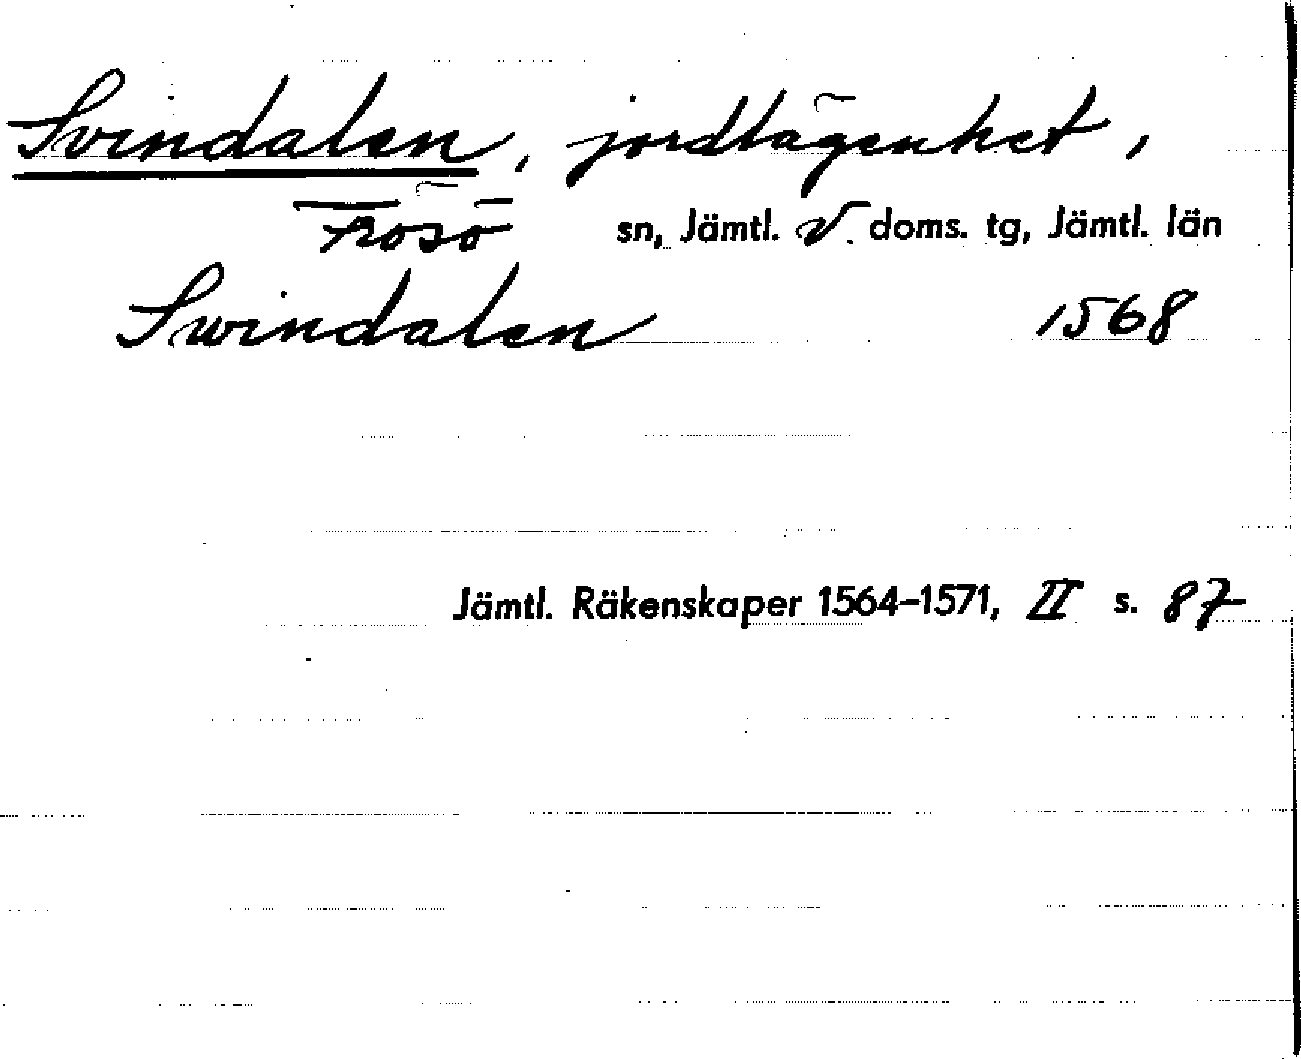 Svindalen, jordlägenhet,
Frösö sn, Jämtl. V. doms. tg, Jämtl. län
Swindalen 1568
Jämtl. Räkenskaper 1564-1571, II s. 87